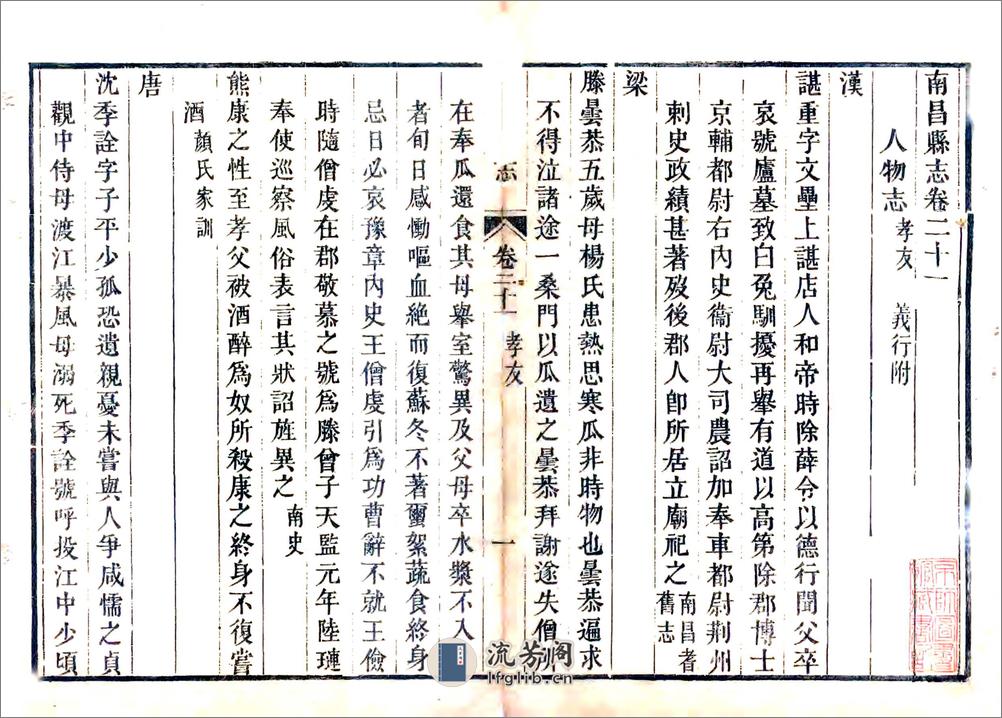 南昌縣志卷二十一
人物志 孝友 義行附
漢
諶重字文壘上諶店人和帝時除薛令以德行聞父卒
哀號廬墓致白兔馴擾再舉有道以高第除郡博士
京輔都尉右內史衞尉大司農詔加奉車都尉荆州
刺史政績甚著歿後郡人卽所居立廟祀之 南昌耆舊志
梁
滕曇恭五歲母楊氏患熱思寒瓜非時物也曇恭遍求
不得泣諸途一桑門以瓜遺之曇恭拜謝遂失僧所
志 卷二十一 孝友 一
在奉瓜還食其母舉室驚異及父母卒水漿不入口
者旬日感慟嘔血絶而復蘇冬不著蠒絮蔬食終身
忌日必哀豫章內史王僧虔引爲功曹辭不就王儉
時隨僧虔在郡敬慕之號爲滕曾子天監元年陸璉
奉使巡察風俗表言其狀詔旌異之 南史
熊康之性至孝父被酒醉爲奴所殺康之終身不復嘗
酒 顏氏家訓
唐
沈季詮字子平少孤恐遺親憂未嘗與人爭咸懦之貞
觀中侍母渡江暴風母溺死季詮號呼投江中少頃
流芳阁
lfglib.cn